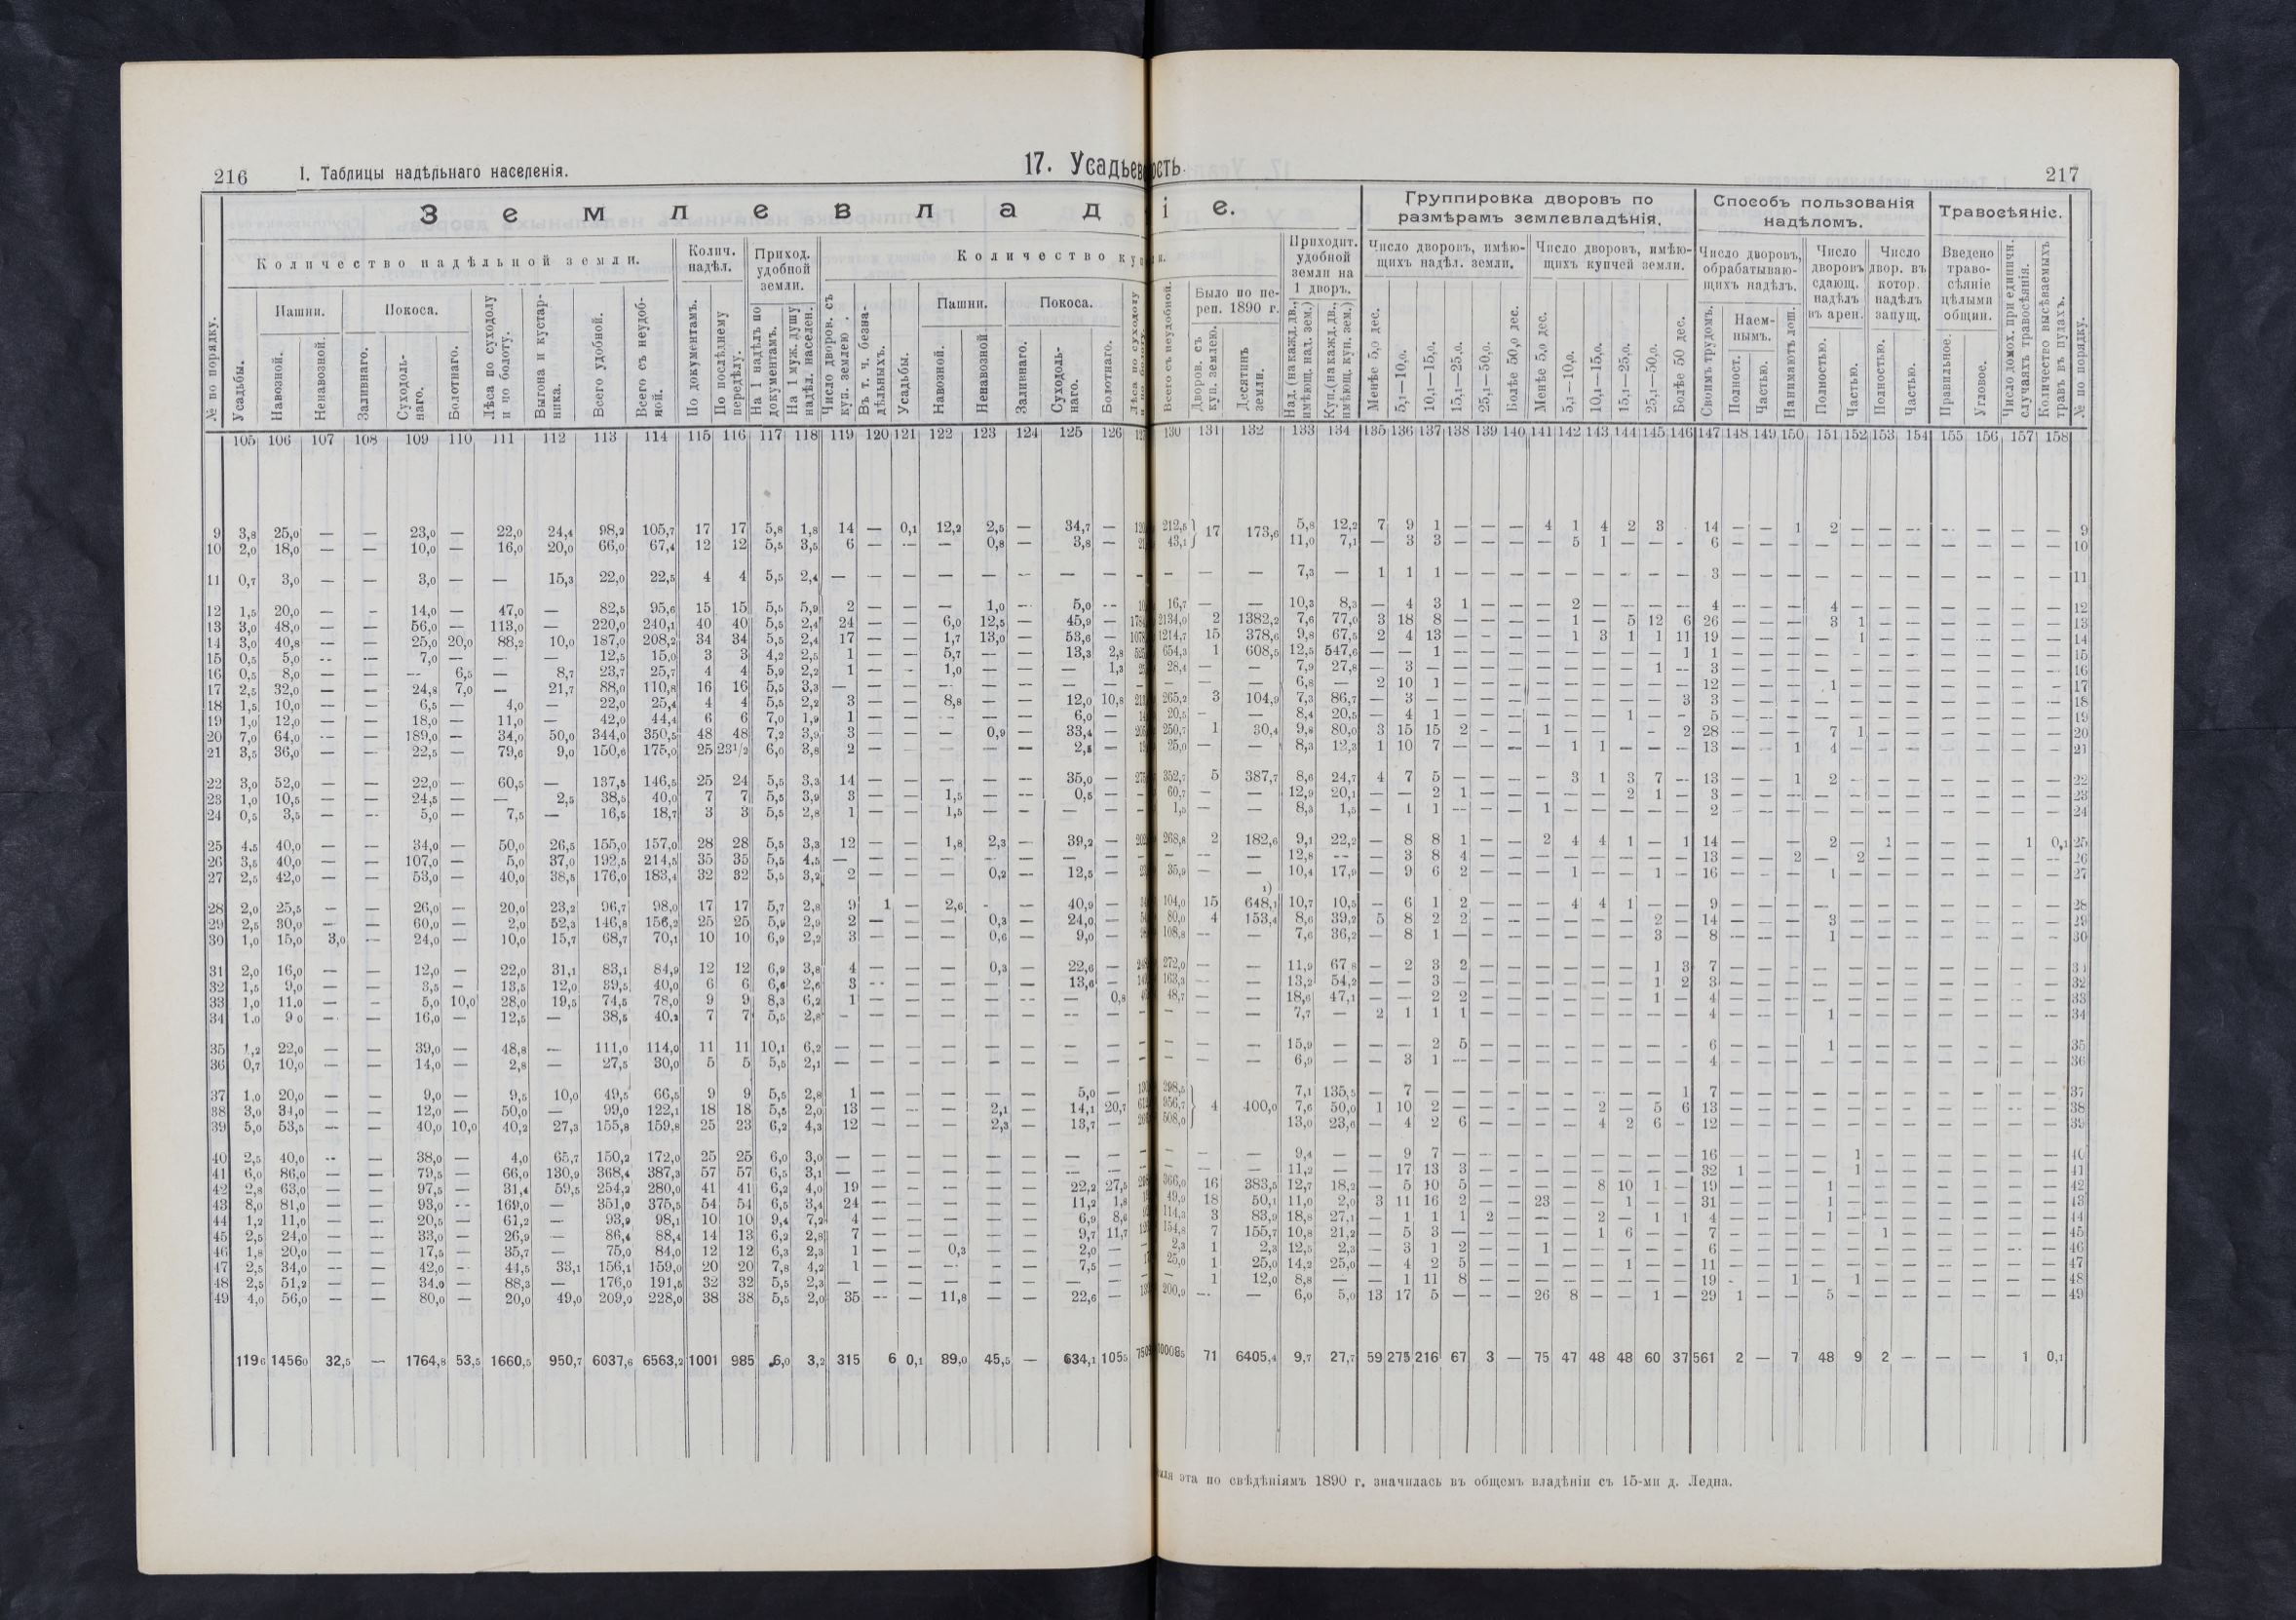 216 I. Таблицы надѣльнаго населенія. 17. Усадьев ость. 217
З е м л е в л а д і е.
Группировка дворовъ по размѣрамъ землевладѣнія.
Способъ пользованія надѣломъ.
Травосѣяніе.
№ по порядку.
Количество надѣльной земли.
Усадьбы.
Пашни.
Навозной.
Ненавозной.
Покоса.
Заливнаго.
Суходольнаго.
Болотнаго.
Лѣса по суходолу и по болоту.
Выгона и кустарника.
Всего удобной.
Всего съ неудобной.
Колич. надѣл.
По документамъ.
По послѣднему передѣлу.
Приход. удобной земли.
На 1 надѣлъ по документамъ.
На 1 муж. душу надѣл. населен.
Количество ку
Число дворов. съ куп. землею.
Въ т. ч. безнадѣльныхъ.
Усадьбы.
Пашни.
Навозной.
Ненавозной
Покоса.
Заливнаго.
Суходольнаго.
Болотнаго.
Лѣса по суходолу
Всего съ неудобной.
Было по переп. 1890 г.
Дворов. съ куп. землею.
Десятинъ земли.
Приходит. удобной земли на 1 дворъ.
Над. (на кажд. дв., имѣющ. над. зем.)
Куп. (на кажд. дв., имѣющ. куп. зем.)
Число дворовъ, имѣющихъ надѣл. земли.
Менѣе 5,0 дес.
5,1—10,0.
10,1—15,0.
15,1—25,0.
25,1—50,0.
Болѣе 50,0 дес.
Число дворовъ, имѣющихъ купчей земли.
Менѣе 5,0 дес.
5,1—10,0.
10,1—15,0.
15,1—25,0.
25,1—50,0.
Болѣе 50 дес.
Число дворовъ, обрабатывающихъ надѣлъ.
Своимъ трудомъ.
Наемнымъ.
Полност.
Частью.
Нанимаютъ лош.
Число дворовъ сдающ. надѣлъ въ арен.
Полностью.
Частью.
Число двор. въ котор. надѣлъ запущ.
Полностью.
Частью.
Введено травосѣяніе цѣлыми общин.
Правильное.
Угловое.
Число домох. при единичн. случаяхъ травосѣянія.
Количество высѣваемыхъ травъ въ пудахъ.
№ по порядку.
105 106 107 108 109 110 111 112 113 114 115 116 117 118 119 120 121 122 123 124 125 126 130 131 132 133 134 135 136 137 138 139 140 141 142 143 144 145 146 147 148 149 150 151 152 153 154 155 156 157 158
9 3,8 25,0 — — 23,0 — 22,0 24,4 98,2 105,7 17 17 5,8 1,8 14 — 0,1 12,2 2,5 — 34,7 — 212,5 17 173,6 5,8 12,2 7 9 1 — — — 4 1 4 2 3 14 — — 1 2 — — — — — — — 9
10 2,0 18,0 — — 10,0 — 16,0 20,0 66,0 67,4 12 12 5,5 3,5 6 — — — 0,8 — 3,8 — 43,1 11,0 7,1 — 3 3 — — — — 5 1 — — — 6 — — — — — — — — — — — 10
11 0,7 3,0 — — 3,0 — — 15,3 22,0 22,5 4 4 5,5 2,4 — — — — — — — — — — — 7,3 — 1 1 1 — — — — — — — — — 3 — — — — — — — — — — — 11
12 1,5 20,0 — — 14,0 — 47,0 — 82,5 95,6 15 15 5,5 5,9 2 — — — 1,0 — 5,0 — 16,7 — — 10,3 8,3 — 4 3 1 — — — 2 — — — — 4 — — — 4 — — — — — — — 12
13 3,0 48,0 — — 56,0 — 113,0 — 220,0 240,1 40 40 5,5 2,4 24 — — 6,0 12,5 — 45,9 — 2134,0 2 1382,2 7,6 77,0 3 18 8 — — — — 1 — 5 12 6 26 — — — 3 1 — — — — — — 13
14 3,0 40,8 — — 25,0 20,0 88,2 10,0 187,0 208,2 34 34 5,5 2,4 17 — — 1,7 13,0 — 53,6 — 1214,7 15 378,6 9,8 67,5 2 4 13 — — — — 1 3 1 1 11 19 — — — — 1 — — — — — — 14
15 0,5 5,0 — — 7,0 — — — 12,5 15,0 3 3 4,2 2,5 1 — — 5,7 — — 13,3 2,8 654,3 1 608,5 12,5 547,6 — — 1 — — — — — — — — 1 1 — — — — — — — — — — — 15
16 0,5 8,0 — — — 6,5 — 8,7 23,7 25,7 4 4 5,9 2,2 1 — — 1,0 — — — 1,3 28,4 — — 7,9 27,8 — 3 — — — — — — — — 1 — 3 — — — — — — — — — — — 16
17 2,5 32,0 — — 24,8 7,0 — 21,7 88,0 110,8 16 16 5,5 3,3 — — — — — — — — — — — 6,8 — 2 10 1 — — — — — — — — — 12 — — — 1 — — — — — — — 17
18 1,5 10,0 — — 6,5 — 4,0 — 22,0 25,4 4 4 5,5 2,2 3 — — 8,8 — — 12,0 10,8 265,2 3 104,9 7,3 86,7 — 3 — — — — — — — — — 3 3 — — — — — — — — — — — 18
19 1,0 12,0 — — 18,0 — 11,0 — 42,0 44,4 6 6 7,0 1,9 1 — — — — — 6,0 — 20,5 — — 8,4 20,5 — 4 1 — — — — — — 1 — — 5 — — — — — — — — — — — 19
20 7,0 64,0 — — 189,0 — 34,0 50,0 344,0 350,5 48 48 7,2 3,9 3 — — — 0,9 — 33,4 — 250,7 1 30,4 9,8 80,0 3 15 15 2 — — 1 — — — — 2 28 — — — 7 1 — — — — — — 20
21 3,5 36,0 — — 22,5 — 79,6 9,0 150,6 175,0 25 23½ 6,0 3,8 2 — — — — — 2,5 — 25,0 — — 8,3 12,3 1 10 7 — — — — 1 1 — — — 13 — — 1 4 — — — — — — — 21
22 3,0 52,0 — — 22,0 — 60,5 — 137,5 146,5 25 24 5,5 3,3 14 — — — — — 35,0 — 352,7 5 387,7 8,6 24,7 4 7 5 — — — — 3 1 3 7 — 13 — — 1 2 — — — — — — — 22
23 1,0 10,5 — — 24,5 — — 2,5 38,5 40,0 7 7 5,5 3,9 3 — — 1,5 — — 0,5 — 60,7 — — 12,9 20,1 — — 2 1 — — — — — 2 1 — 3 — — — — — — — — — — — 23
24 0,5 3,5 — — 5,0 — 7,5 — 16,5 18,7 3 3 5,5 2,8 1 — — 1,5 — — — — 1,5 — — 8,3 1,5 — 1 1 — — — 1 — — — — — 2 — — — — — — — — — — — 24
25 4,5 40,0 — — 34,0 — 50,0 26,5 155,0 157,0 28 28 5,5 3,3 12 — — 1,8 2,3 — 39,2 — 268,8 2 182,6 9,1 22,2 — 8 8 1 — — 2 4 4 1 — 1 14 — — — 2 — 1 — — — 1 0,1 25
26 3,5 40,0 — — 107,0 — 5,0 37,0 192,5 214,5 35 35 5,5 4,5 — — — — — — — — — — — 12,8 — — 3 8 4 — — — — — — — — 13 — — 2 — 2 — — — — — — 26
27 2,5 42,0 — — 53,0 — 40,0 38,5 176,0 183,4 32 32 5,5 3,2 2 — — — 0,2 — 12,5 — 35,9 — — 10,4 17,9 — 9 6 2 — — — 1 — — 1 — 16 — — — 1 — — — — — — — 27
28 2,0 25,5 — — 26,0 — 20,0 23,2 96,7 98,0 17 17 5,7 2,8 9 1 — 2,6 — — 40,9 — 104,0 15 ¹) 648,1 10,7 10,5 — 6 1 2 — — — 4 4 1 — — 9 — — — — — — — — — — — 28
29 2,5 30,0 — — 60,0 — 2,0 52,3 146,8 156,2 25 25 5,9 2,9 2 — — — 0,3 — 24,0 — 80,0 4 153,4 8,6 39,2 5 8 2 2 — — — — — — 2 — 14 — — — 3 — — — — — — — 29
30 1,0 15,0 3,0 — 24,0 — 10,0 15,7 68,7 70,1 10 10 6,9 2,2 3 — — — 0,6 — 9,0 — 108,8 — — 7,6 36,2 — 8 1 — — — — — — — 3 — 8 — — — 1 — — — — — — — 30
31 2,0 16,0 — — 12,0 — 22,0 31,1 83,1 84,9 12 12 6,9 3,8 4 — — — 0,3 — 22,6 — 272,0 — — 11,9 67 8 — 2 3 2 — — — — — — 1 3 7 — — — — — — — — — — — 31
32 1,5 9,0 — — 3,5 — 13,5 12,0 39,5 40,0 6 6 6,6 2,6 3 — — — — — 13,6 — 163,3 — — 13,2 54,2 — — 3 — — — — — — — 1 2 3 — — — — — — — — — — — 32
33 1,0 11,0 — — 5,0 10,0 28,0 19,5 74,5 78,0 9 9 8,3 6,2 1 — — — — — — 0,8 48,7 — — 18,6 47,1 — — 2 2 — — — — — — 1 — 4 — — — — — — — — — — — 33
34 1,0 9 0 — — 16,0 — 12,5 — 38,5 40,2 7 7 5,5 2,8 — — — — — — — — — — — 7,7 — 2 1 1 1 — — — — — — — — 4 — — — 1 — — — — — — — 34
35 1,2 22,0 — — 39,0 — 48,8 — 111,0 114,0 11 11 10,1 6,2 — — — — — — — — — — — 15,9 — — — 2 5 — — — — — — — — 6 — — — 1 — — — — — — — 35
36 0,7 10,0 — — 14,0 — 2,8 — 27,5 30,0 5 5 5,5 2,1 — — — — — — — — — — — 6,9 — — 3 1 — — — — — — — — — 4 — — — — — — — — — — — 36
37 1,0 20,0 — — 9,0 — 9,5 10,0 49,5 66,5 9 9 5,5 2,8 1 — — — — — 5,0 — 298,5 7,1 135,5 — 7 — — — — — — — — — 1 7 — — — — — — — — — — — 37
38 3,0 34,0 — — 12,0 — 50,0 — 99,0 122,1 18 18 5,5 2,0 13 — — — 2,1 — 14,1 20,7 956,7 4 400,0 7,6 50,0 1 10 2 — — — — — 2 — 5 6 13 — — — — — — — — — — — 38
39 5,0 53,5 — — 40,0 10,0 40,2 27,3 155,8 159,8 25 23 6,2 4,3 12 — — — 2,3 — 13,7 — 508,0 13,0 23,6 — 4 2 6 — — — — 4 2 6 — 12 — — — — — — — — — — — 39
40 2,5 40,0 — — 38,0 — 4,0 65,7 150,2 172,0 25 25 6,0 3,0 — — — — — — — — — — — 9,4 — — 9 7 — — — — — — — — — 16 — — — — 1 — — — — — — 40
41 6,0 86,0 — — 79,5 — 66,0 130,9 368,4 387,3 57 57 6,5 3,1 — — — — — — — — — — — 11,2 — — 17 13 3 — — — — — — — — 32 1 — — — 1 — — — — — — 41
42 2,8 63,0 — — 97,5 — 31,4 59,5 254,2 280,0 41 41 6,2 4,0 19 — — — — — 22,2 27,5 366,0 16 383,5 12,7 18,2 — 5 10 5 — — — — 8 10 1 — 19 — — — 1 — — — — — — — 42
43 8,0 81,0 — — 93,0 — 169,0 — 351,0 375,5 54 54 6,5 3,4 24 — — — — — 11,2 1,8 49,9 18 50,1 11,0 2,0 3 11 16 2 — — 23 — — 1 — — 31 — — — 1 — — — — — — — 43
44 1,2 11,0 — — 20,5 — 61,2 — 93,9 98,1 10 10 9,4 7,2 4 — — — — — 6,9 8,6 114,3 3 83,9 18,8 27,1 — 1 1 1 2 — — — 2 — 1 1 4 — — — 1 — — — — — — — 44
45 2,5 24,0 — — 33,0 — 26,9 — 86,4 88,4 14 13 6,2 2,8 7 — — — — — 9,7 11,7 154,8 7 155,7 10,8 21,2 — 5 3 — — — — — 1 6 — — 7 — — — — — 1 — — — — — 45
46 1,8 20,0 — — 17,5 — 35,7 — 75,0 84,0 12 12 6,3 2,3 1 — — 0,3 — — 2,0 — 2,3 1 2,3 12,5 2,3 — 3 1 2 — — 1 — — — — — 6 — — — — — — — — — — — 46
47 2,5 34,0 — — 42,0 — 44,5 33,1 156,1 159,0 20 20 7,8 4,2 1 — — — — — 7,5 — 25,0 1 25,0 14,2 25,0 — 4 2 5 — — — — — 1 — — 11 — — — — — — — — — — — 47
48 2,5 51,2 — — 34,0 — 88,3 — 176,0 191,5 32 32 5,5 2,3 — — — — — — — — — 1 12,0 8,8 — — 1 11 8 — — — — — — — — 19 — — 1 — 1 — — — — — — 48
49 4,0 56,0 — — 80,0 — 20,0 49,0 209,0 228,0 38 38 5,5 2,0 35 — — 11,8 — — 22,6 — 200,9 — — 6,0 5,0 13 17 5 — — — 26 8 — — 1 — 29 1 — — 5 — — — — — — — 49
119 6 1456 0 32,5 — 1764,8 53,5 1660,5 950,7 6037,6 6563,2 1001 985 6,0 3,2 315 6 0,1 89,0 45,5 — 634,1 105 5 10085 71 6405,4 9,7 27,7 59 275 216 67 3 — 75 47 48 48 60 37 561 2 — 7 48 9 2 — — — 1 0,1
эта по свѣдѣніямъ 1890 г. значилась въ общемъ владѣніи съ 15-ми д. Ледна.